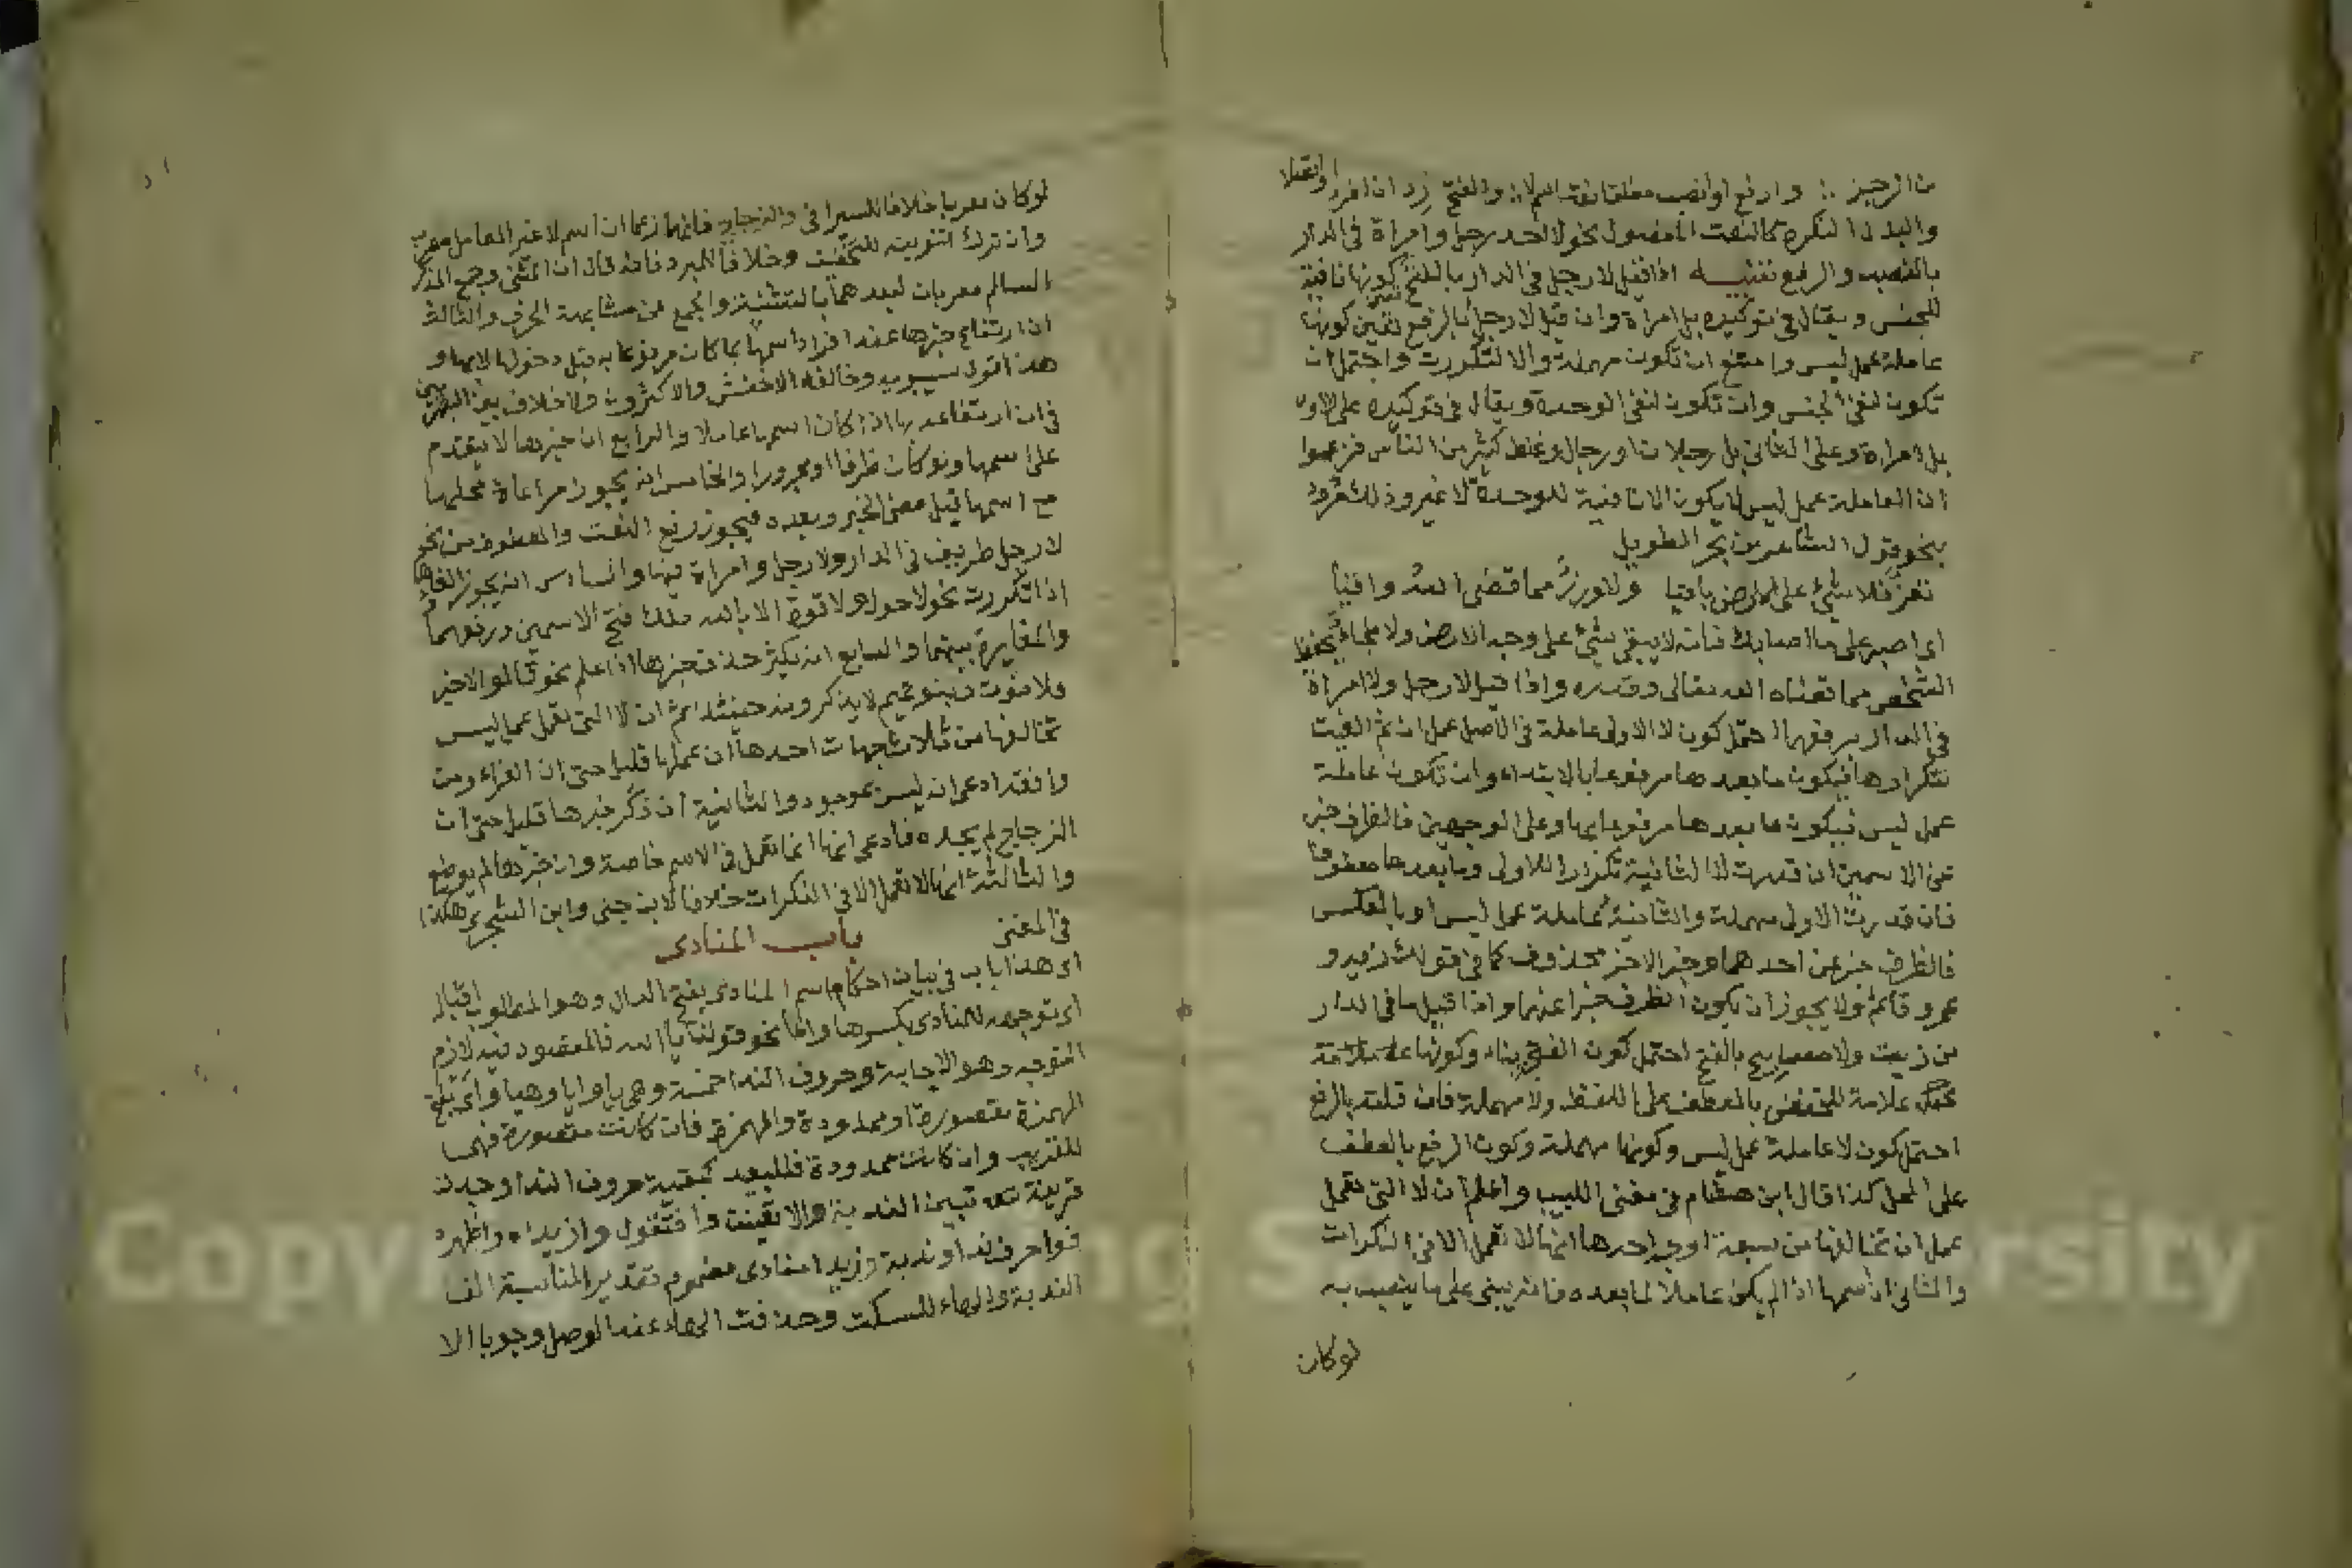 من الرجيز ∴ وارفع او انصب مطلقا نعت اسم لا ∴ والفتح زد ان افردا واتصلا
والبدل النكرة كالنعت المفصول نحو لا احد رجل وامراة في الدار
بالنصب والرفع تنبيه اذا قيل لا رجل في الدار بالفتح تعين كونها نافية
للجنس ويقال في توكيده بل امراة وان قيل لا رجل بالرفع تعين كونها
عاملة عمل ليس وامتنع ان تكون مهملة والا لتكررت واحتمل ان
تكون لنفي الجنس وان تكون لنفي الوحدة ويقال في توكيده على الاول
بل امراة وعلى الثاني بل رجلان او رجال وغلط كثير من الناس فزعموا
ان العاملة عمل ليس لا يكون الا نافية للوحدة لا غير وذلك مردود
بنحو قول الشاعر من بحر الطويل
تعز فلا شيء على الارض باقيا ولا وزر مما قضى الله واقيا
اي اصبر على ما اصابك فانه لا يبقى شيء على وجه الارض ولا ملجأ يحفظ
الشخص مما قضاه الله تعالى وقدره واذا قيل لا رجل ولا امراة
في الدار برفعهما احتمل كون لا الاولى عاملة في الاصل عمل ان ثم الغيت
لتكرارها فيكون ما بعدها مرفوعا بالابتداء وان تكون عاملة
عمل ليس فيكون ما بعدها مرفوعا بها وعلى الوجهين فالظرف خبر
عن الاسمين ان قدرت لا الثانية تكرارا للاولى وما بعدها معطوفا
فان قدرت الاولى مهملة والثانية عاملة عمل ليس او بالعكس
فالظرف خبر عن احدهما وخبر الاخر محذوف كما في قولك زيد و
عمرو قائم ولا يجوز ان يكون الظرف خبرا عنهما واذا قيل ما في الدار
من زيت ولا مصابيح بالفتح احتمل كون الفتح بناء وكونها علامة
علامة للخفض بالعطف على اللفظ ولا مهملة فان قلته بالرفع
احتمل كون لا عاملة عمل ليس وكونها مهملة وكون الرفع بالعطف
على المحل كذا قال ابن هشام في مغني اللبيب واعلم ان لا التي تعمل
عمل ان تخالفها من سبعة اوجه احدها انها لا تعمل الا في النكرات
والثاني ان اسمها اذا لم يكن عاملا لما بعده فانه يبنى على ما ينصب به
لو كان
لو كان معربا خلافا للسيرافي والزجاج فانهما زعما ان اسم لا غير العامل معرب
وان ترك التنوين للتخفيف وخلافا للمبرد فانه قال ان المثنى وجمع المذكر
السالم معربان لبعدهما بالتثنية والجمع عن مشابهة الحرف والثالث
ان ارتفاع خبرها عند افراد اسمها بما كان مرفوعا به قبل دخولها لا بها و
هذا قول سيبويه وخالفه الاخفش والاكثرون ولا خلاف بين البصريين
في ان ارتفاعه بها اذا كان اسمها عاملا والرابع ان خبرها لا يتقدم
على اسمها ولو كان ظرفا او مجرورا والخامس انه يجوز مراعاة محلها
مع اسمها قبل مضي الخبر وبعده فيجوز رفع النعت والمعطوف من نحو
لا رجل ظريف في الدار ولا رجل وامراة فيها والسادس انه يجوز الغاؤها
اذا تكررت نحو لا حول ولا قوة الا بالله فلك فتح الاسمين ورفعهما
والمغايرة بينهما والسابع انه يكثر حذف خبرها اذا علم نحو قالوا لا ضير
فلا فوت وبنو تميم لا يذكرونه حينئذ ثم ان لا التي تعمل عمل ليس
تخالفها من ثلاث جهات احدها ان عملها قليل حتى ان الفراء ومن
وافقه ادعى انه ليس بموجود والثانية ان ذكر خبرها قليل حتى ان
الزجاج لم يجده فادعى انها انما تعمل في الاسم خاصة وان خبرها لم يوضع
والثالثة انها لا تعمل الا في النكرات خلافا لابن جني وابن الشجري هكذا
في المغني
باب المنادى
اي هذا باب في بيان احكام اسم المنادى بفتح الدال وهو المطلوب اقباله
اي توجهه للمنادي بكسرها واما نحو قولنا يا الله فالمقصود فيه لازم
التوجه وهو الاجابة وحروف النداء خمسة وهي يا وايا وهيا واي
الهمزة مقصورة او ممدودة والهمزة فان كانت مقصورة فهي
للقريب وان كانت ممدودة فللبعيد كبقية حروف النداء وجدت
قرينة تبين الندبة والا تعينت وا فتقول وا زيداه واظهره
فوا حرف نداء وندبة وزيدا منادى مضموم تقديرا لمناسبة الف
الندبة والهاء للسكت وحذفت الهاء عند الوصل وجوبا الا